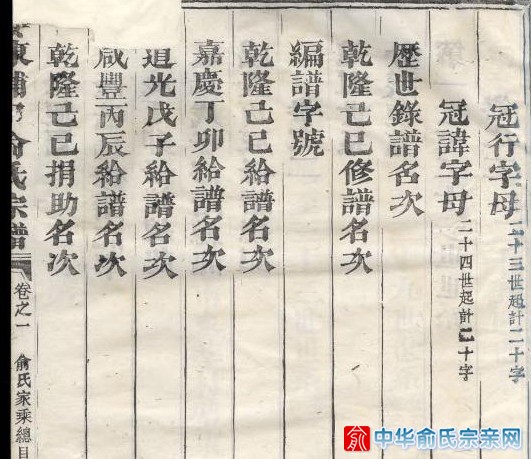 冠行字母 二十三世起計二十字
冠諱字母 二十四世起計二十字
歷世錄譜名次
乾隆己巳修譜名次
編譜字號
乾隆己巳給譜名次
嘉慶丁卯給譜名次
道光戊子給譜名次
咸豐丙辰給譜名次
乾隆己巳捐助名次
俞氏宗譜 卷之一 俞氏家乘總目
俞 中华俞氏宗亲网